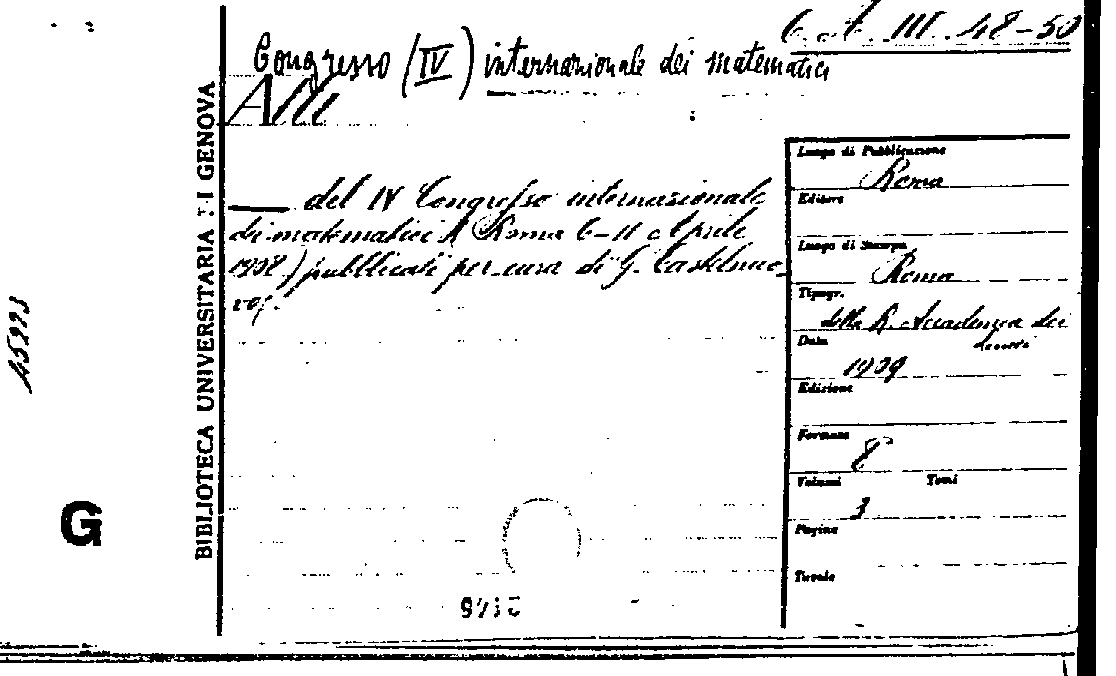 6. A. III. 48-50
Congresso (IV) internazionale dei matematici
Atti
del IV Congresso internazionale
di matematici (Roma 6-11 Aprile
1908) pubblicati per cura di G. Castelnuo-
vo/.
BIBLIOTECA UNIVERSITARIA DI GENOVA
45223
G
Luogo di Pubblicazione
Roma
Editore
Luogo di Stampa
Roma
Tipogr.
della R. Accademia dei
Lincei
Data
1909
Edizione
Formato
8
Volumi Tomi
3
Pagine
Tavole